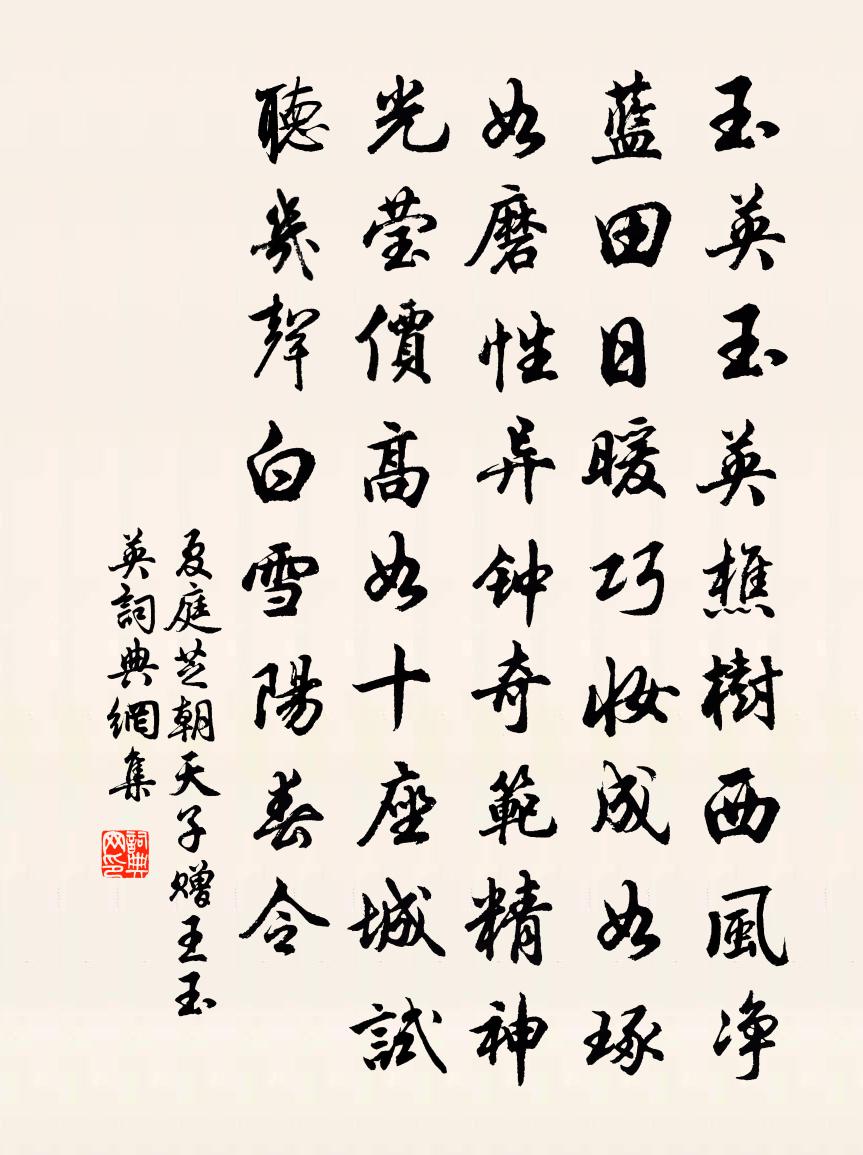 玉英玉英樵樹西風净
藍田日暖巧妝成如琢
如磨性异钟奇範精神
光莹價高如十座城試
聽幾聲白雪陽春令
夏庭芝朝天子赠王玉
英詞典網集
詞典網印